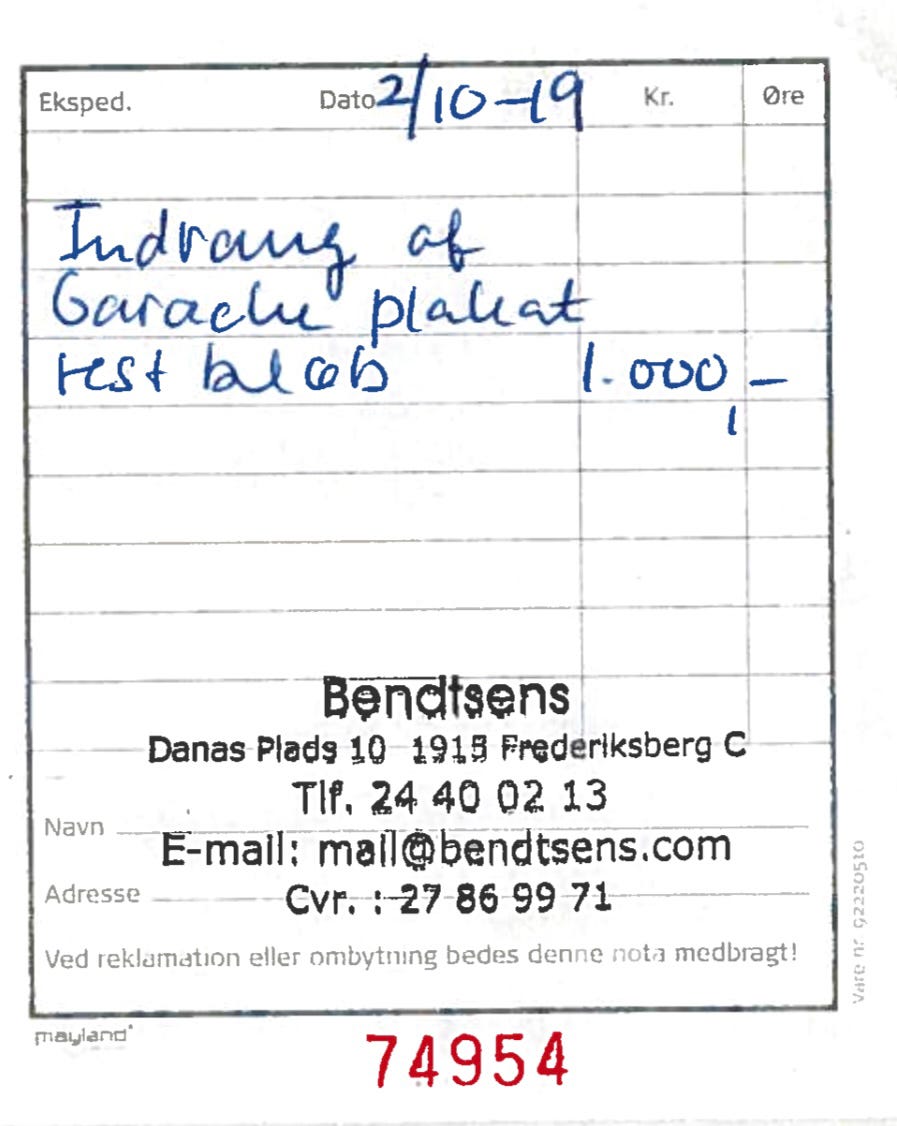 Eksped. Dato 2/10-19 Kr. Øre
Indramg af
Garache plakat
rest beløb 1.000,-
Bendtsens
Danas Plads 10 1915 Frederiksberg C
Tlf. 24 40 02 13
Navn
E-mail: mail@bendtsens.com
Adresse
Cvr. : 27 86 99 71
Ved reklamation eller ombytning bedes denne nota medbragt!
mayland
74954
Vare nr. 92220510